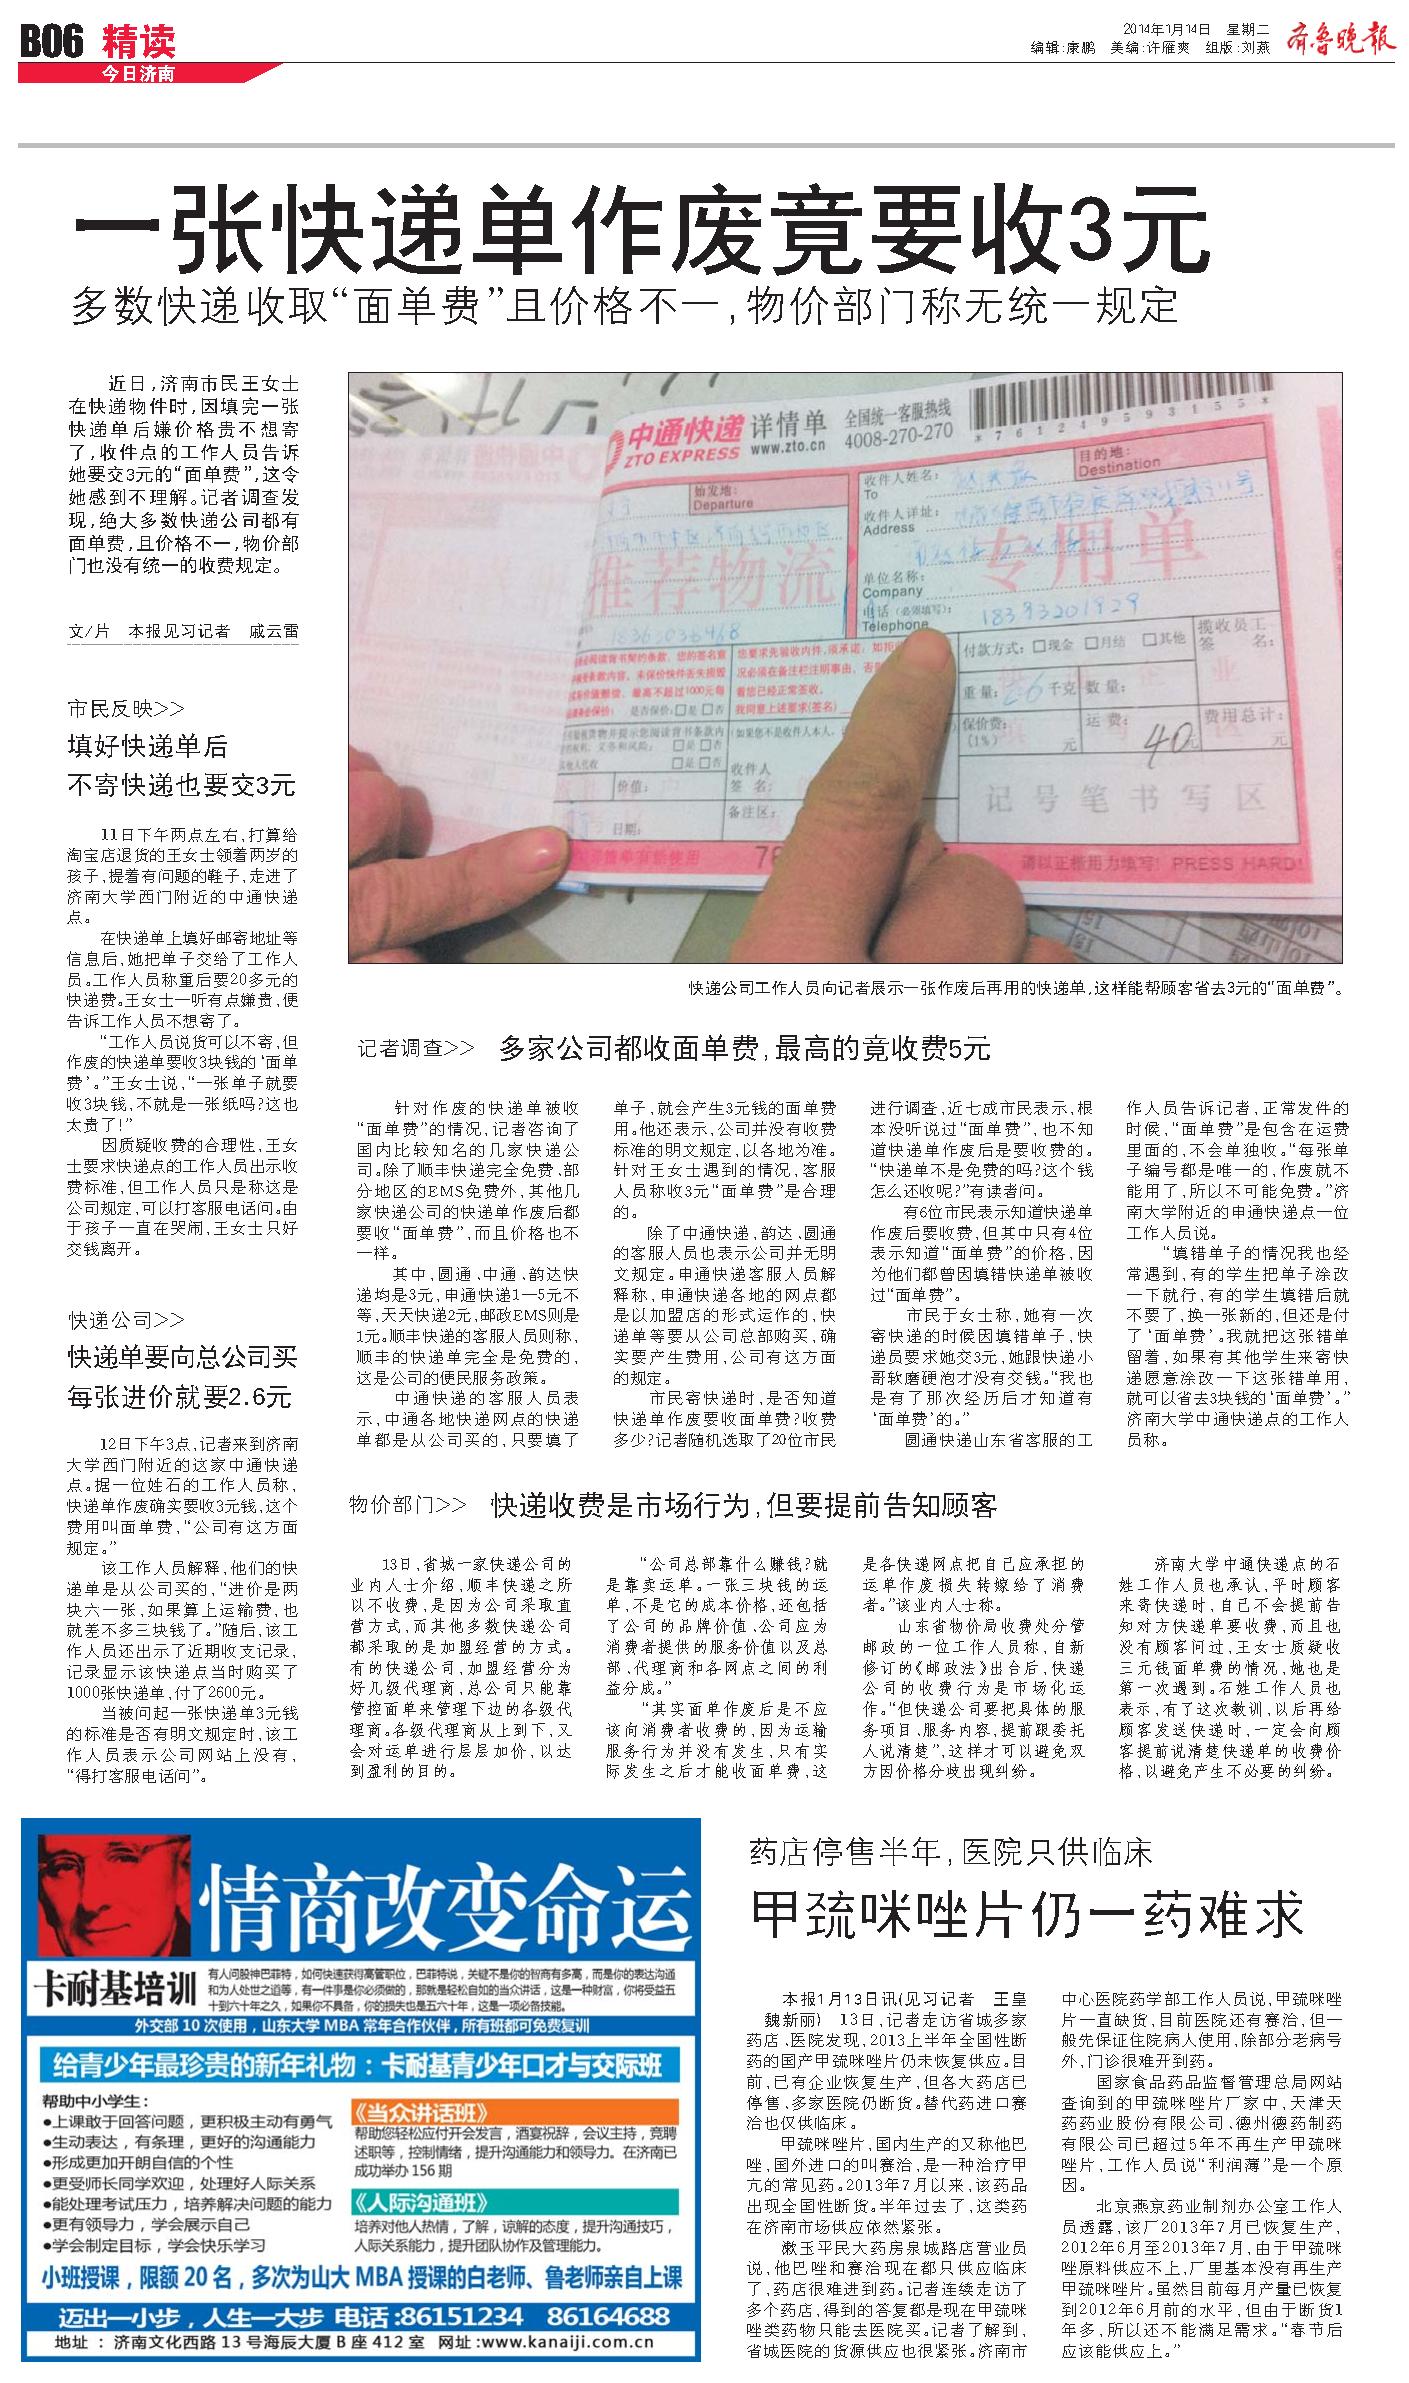 B06 精读
今日济南
2014年1月14日 星期二
编辑：康鹏 美编：许雁爽 组版：刘燕
齐鲁晚报
一张快递单作废竟要收3元
多数快递收取“面单费”且价格不一，物价部门称无统一规定
近日，济南市民王女士
在快递物件时，因填完一张
快递单后嫌价格贵不想寄
了，收件点的工作人员告诉
她要交3元的“面单费”，这令
她感到不理解。记者调查发
现，绝大多数快递公司都有
面单费，且价格不一，物价部
门也没有统一的收费规定。
文/片 本报见习记者 戚云雷
市民反映>>
填好快递单后
不寄快递也要交3元
11日下午两点左右，打算给
淘宝店退货的王女士领着两岁的
孩子，提着有问题的鞋子，走进了
济南大学西门附近的中通快递
点。
在快递单上填好邮寄地址等
信息后，她把单子交给了工作人
员。工作人员称重后要20多元的
快递费。王女士一听有点嫌贵，便
告诉工作人员不想寄了。
“工作人员说货可以不寄，但
作废的快递单要收3块钱的‘面单
费’。”王女士说，“一张单子就要
收3块钱，不就是一张纸吗？这也
太贵了！”
因质疑收费的合理性，王女
士要求快递点的工作人员出示收
费标准，但工作人员只是称这是
公司规定，可以打客服电话问。由
于孩子一直在哭闹，王女士只好
交钱离开。
快递公司>>
快递单要向总公司买
每张进价就要2.6元
12日下午3点，记者来到济南
大学西门附近的这家中通快递
点。据一位姓石的工作人员称，
快递单作废确实要收3元钱，这个
费用叫面单费，“公司有这方面
规定。”
该工作人员解释，他们的快
递单是从公司买的，“进价是两
块六一张，如果算上运输费，也
就差不多三块钱了。”随后，该工
作人员还出示了近期收支记录，
记录显示该快递点当时购买了
1000张快递单，付了2600元。
当被问起一张快递单3元钱
的标准是否有明文规定时，该工
作人员表示公司网站上没有，
“得打客服电话问”。
中通快递
ZTO EXPRESS
详情单
www.zto.cn
全国统一客服热线
4008-270-270
*761249593155*
始发地：
Departure
收件人姓名：
To
目的地：
Destination
收件人详址：
Address
推荐物流
专用单
单位名称：
Company
电话（必须填写）：
Telephone
18393201929
付款方式：□现金 □月结 □其他
揽收员工
签 名：
重量： 千克
数量：
保价费：
（1%） 元
运费：
40元
费用总计：
元
收件人
签 名：
价值：
备注区：
日期：
记号笔书写区
请以正楷用力填写！PRESS HARD!
快递公司工作人员向记者展示一张作废后再用的快递单，这样能帮顾客省去3元的“面单费”。
记者调查>> 多家公司都收面单费，最高的竟收费5元
针对作废的快递单被收
“面单费”的情况，记者咨询了
国内比较知名的几家快递公
司。除了顺丰快递完全免费、部
分地区的EMS免费外，其他几
家快递公司的快递单作废后都
要收“面单费”，而且价格也不
一样。
其中，圆通、中通、韵达快
递均是3元，申通快递1—5元不
等，天天快递2元，邮政EMS则是
1元。顺丰快递的客服人员则称，
顺丰的快递单完全是免费的，
这是公司的便民服务政策。
中通快递的客服人员表
示，中通各地快递网点的快递
单都是从公司买的，只要填了
单子，就会产生3元钱的面单费
用。他还表示，公司并没有收费
标准的明文规定，以各地为准。
针对王女士遇到的情况，客服
人员称收3元“面单费”是合理
的。
除了中通快递，韵达、圆通
的客服人员也表示公司并无明
文规定。申通快递客服人员解
释称，申通快递各地的网点都
是以加盟店的形式运作的，快
递单等要从公司总部购买，确
实要产生费用，公司有这方面
的规定。
市民寄快递时，是否知道
快递单作废要收面单费？收费
多少？记者随机选取了20位市民
进行调查，近七成市民表示，根
本没听说过“面单费”，也不知
道快递单作废后是要收费的。
“快递单不是免费的吗？这个钱
怎么还收呢？”有读者问。
有6位市民表示知道快递单
作废后要收费，但其中只有4位
表示知道“面单费”的价格，因
为他们都曾因填错快递单被收
过“面单费”。
市民于女士称，她有一次
寄快递的时候因填错单子，快
递员要求她交3元，她跟快递小
哥软磨硬泡才没有交钱。“我也
是有了那次经历后才知道有
‘面单费’的。”
圆通快递山东省客服的工
作人员告诉记者，正常发件的
时候，“面单费”是包含在运费
里面的，不会单独收。“每张单
子编号都是唯一的，作废就不
能用了，所以不可能免费。”济
南大学附近的申通快递点一位
工作人员说。
“填错单子的情况我也经
常遇到，有的学生把单子涂改
一下就行，有的学生填错后就
不要了，换一张新的，但还是付
了‘面单费’。我就把这张错单
留着，如果有其他学生来寄快
递愿意涂改一下这张错单用，
就可以省去3块钱的‘面单费’。”
济南大学中通快递点的工作人
员称。
物价部门>> 快递收费是市场行为，但要提前告知顾客
13日，省城一家快递公司的
业内人士介绍，顺丰快递之所
以不收费，是因为公司采取直
营方式，而其他多数快递公司
都采取的是加盟经营的方式。
有的快递公司，加盟经营分为
好几级代理商，总公司只能靠
管控面单来管理下边的各级代
理商。各级代理商从上到下，又
会对运单进行层层加价，以达
到盈利的目的。
“公司总部靠什么赚钱？就
是靠卖运单。一张三块钱的运
单，不是它的成本价格，还包括
了公司的品牌价值、公司应为
消费者提供的服务价值以及总
部、代理商和各网点之间的利
益分成。”
“其实面单作废后是不应
该向消费者收费的，因为运输
服务行为并没有发生，只有实
际发生之后才能收面单费，这
是各快递网点把自己应承担的
运单作废损失转嫁给了消费
者。”该业内人士称。
山东省物价局收费处分管
邮政的一位工作人员称，自新
修订的《邮政法》出台后，快递
公司的收费行为是市场化运
作。“但快递公司要把具体的服
务项目、服务内容，提前跟委托
人说清楚”，这样才可以避免双
方因价格分歧出现纠纷。
济南大学中通快递点的石
姓工作人员也承认，平时顾客
来寄快递时，自己不会提前告
知对方快递单要收费，而且也
没有顾客问过，王女士质疑收
三元钱面单费的情况，她也是
第一次遇到。石姓工作人员也
表示，有了这次教训，以后再给
顾客发送快递时，一定会向顾
客提前说清楚快递单的收费价
格，以避免产生不必要的纠纷。
情商改变命运
卡耐基培训
有人问股神巴菲特，如何快速获得高管职位，巴菲特说，关键不是你的智商有多高，而是你的表达沟通
和为人处世之道等，有一件事是你必须做的，那就是轻松自如的当众讲话，这是一种财富，你将受益五
十到六十年之久，如果你不具备，你的损失也是五六十年，这是一项必备技能。
外交部10次使用，山东大学MBA常年合作伙伴，所有班都可免费复训
给青少年最珍贵的新年礼物：卡耐基青少年口才与交际班
帮助中小学生：
●上课敢于回答问题，更积极主动有勇气
●生动表达，有条理，更好的沟通能力
●形成更加开朗自信的个性
●更受师长同学欢迎，处理好人际关系
●能处理考试压力，培养解决问题的能力
●更有领导力，学会展示自己
●学会制定目标，学会快乐学习
《当众讲话班》
帮助您轻松应付开会发言，酒宴祝辞，会议主持，竞聘
述职等，控制情绪，提升沟通能力和领导力。在济南已
成功举办156期
《人际沟通班》
培养对他人热情，了解，谅解的态度，提升沟通技巧，
人际关系能力，提升团队协作及管理能力。
小班授课，限额20名，多次为山大MBA授课的白老师、鲁老师亲自上课
迈出一小步，人生一大步 电话：86151234 86164688
地址：济南文化西路13号海辰大厦B座412室 网址：www.kanaiji.com.cn
药店停售半年，医院只供临床
甲巯咪唑片仍一药难求
本报1月13日讯（见习记者 王皇
魏新丽） 13日，记者走访省城多家
药店、医院发现，2013上半年全国性断
药的国产甲巯咪唑片仍未恢复供应。目
前，已有企业恢复生产，但各大药店已
停售，多家医院仍断货。替代药进口赛
治也仅供临床。
甲巯咪唑片，国内生产的又称他巴
唑，国外进口的叫赛治，是一种治疗甲
亢的常见药。2013年7月以来，该药品
出现全国性断货。半年过去了，这类药
在济南市场供应依然紧张。
漱玉平民大药房泉城路店营业员
说，他巴唑和赛治现在都只供应临床
了，药店很难进到药。记者连续走访了
多个药店，得到的答复都是现在甲巯咪
唑类药物只能去医院买。记者了解到，
省城医院的货源供应也很紧张。济南市
中心医院药学部工作人员说，甲巯咪唑
片一直缺货，目前医院还有赛治，但一
般先保证住院病人使用，除部分老病号
外，门诊很难开到药。
国家食品药品监督管理总局网站
查询到的甲巯咪唑片厂家中，天津天
药药业股份有限公司、德州德药制药
有限公司已超过5年不再生产甲巯咪
唑片，工作人员说“利润薄”是一个原
因。
北京燕京药业制剂办公室工作人
员透露，该厂2013年7月已恢复生产，
2012年6月至2013年7月，由于甲巯咪
唑原料供应不上，厂里基本没有再生产
甲巯咪唑片。虽然目前每月产量已恢复
到2012年6月前的水平，但由于断货1
年多，所以还不能满足需求。“春节后
应该能供应上。”